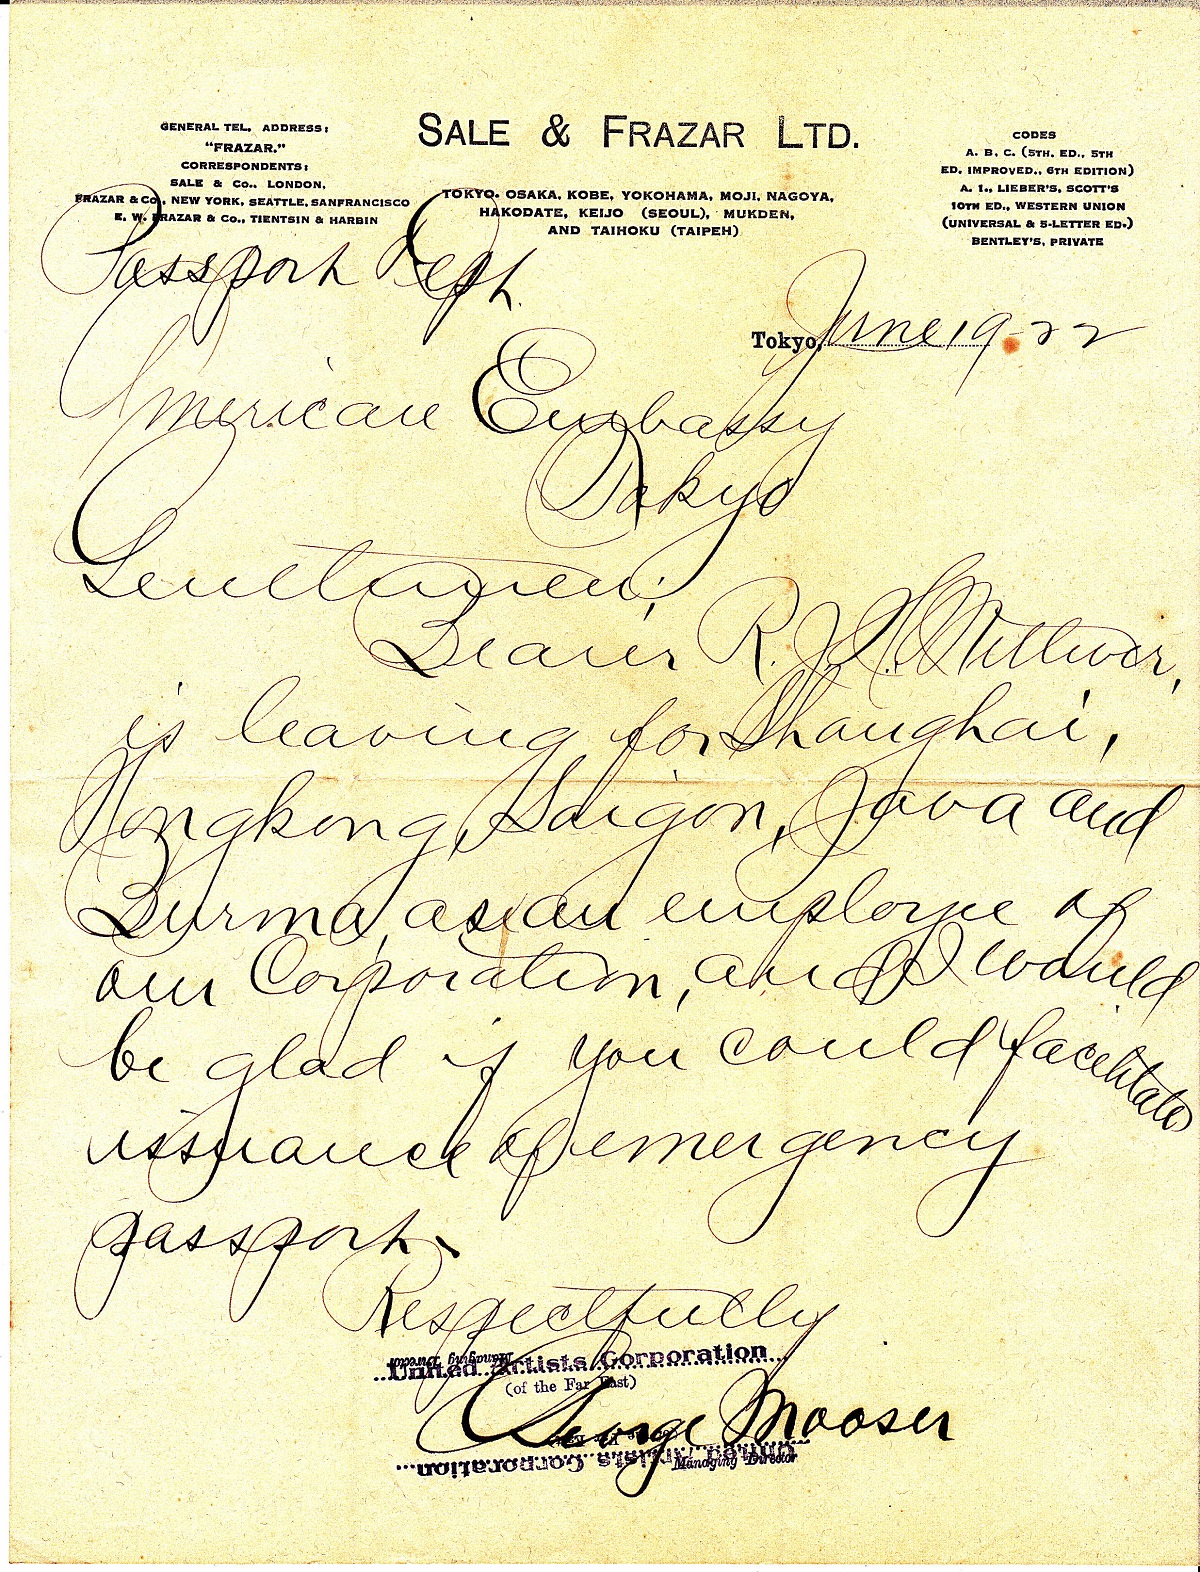 SALE & FRAZAR LTD.
GENERAL TEL. ADDRESS:
"FRAZAR."
CORRESPONDENTS:
SALE & Co., LONDON,
FRAZAR & Co., NEW YORK, SEATTLE, SANFRANCISCO
E. W. FRAZAR & Co., TIENTSIN & HARBIN
TOKYO, OSAKA, KOBE, YOKOHAMA, MOJI, NAGOYA,
HAKODATE, KEIJO (SEOUL), MUKDEN,
AND TAIHOKU (TAIPEH)
CODES
A. B. C. (5TH. ED., 5TH
ED. IMPROVED., 6TH EDITION)
A. I., LIEBER'S, SCOTT'S
10TH ED., WESTERN UNION
(UNIVERSAL & 5-LETTER ED.)
BENTLEY'S, PRIVATE
Passport Dept.
Tokyo, June 19-22
American Embassy
Tokyo
Gentlemen;
Bearer R.
is leaving for Shanghai,
Hongkong, Saigon, Java and
Burma, as an employe of
our Corporation, and I would
be glad if you could facilitate
issuance of emergency
passport.
Respectfully
United Artists Corporation
Managing Director
(of the Far East)
George Mooser
Managing Director
United Artists Corporation